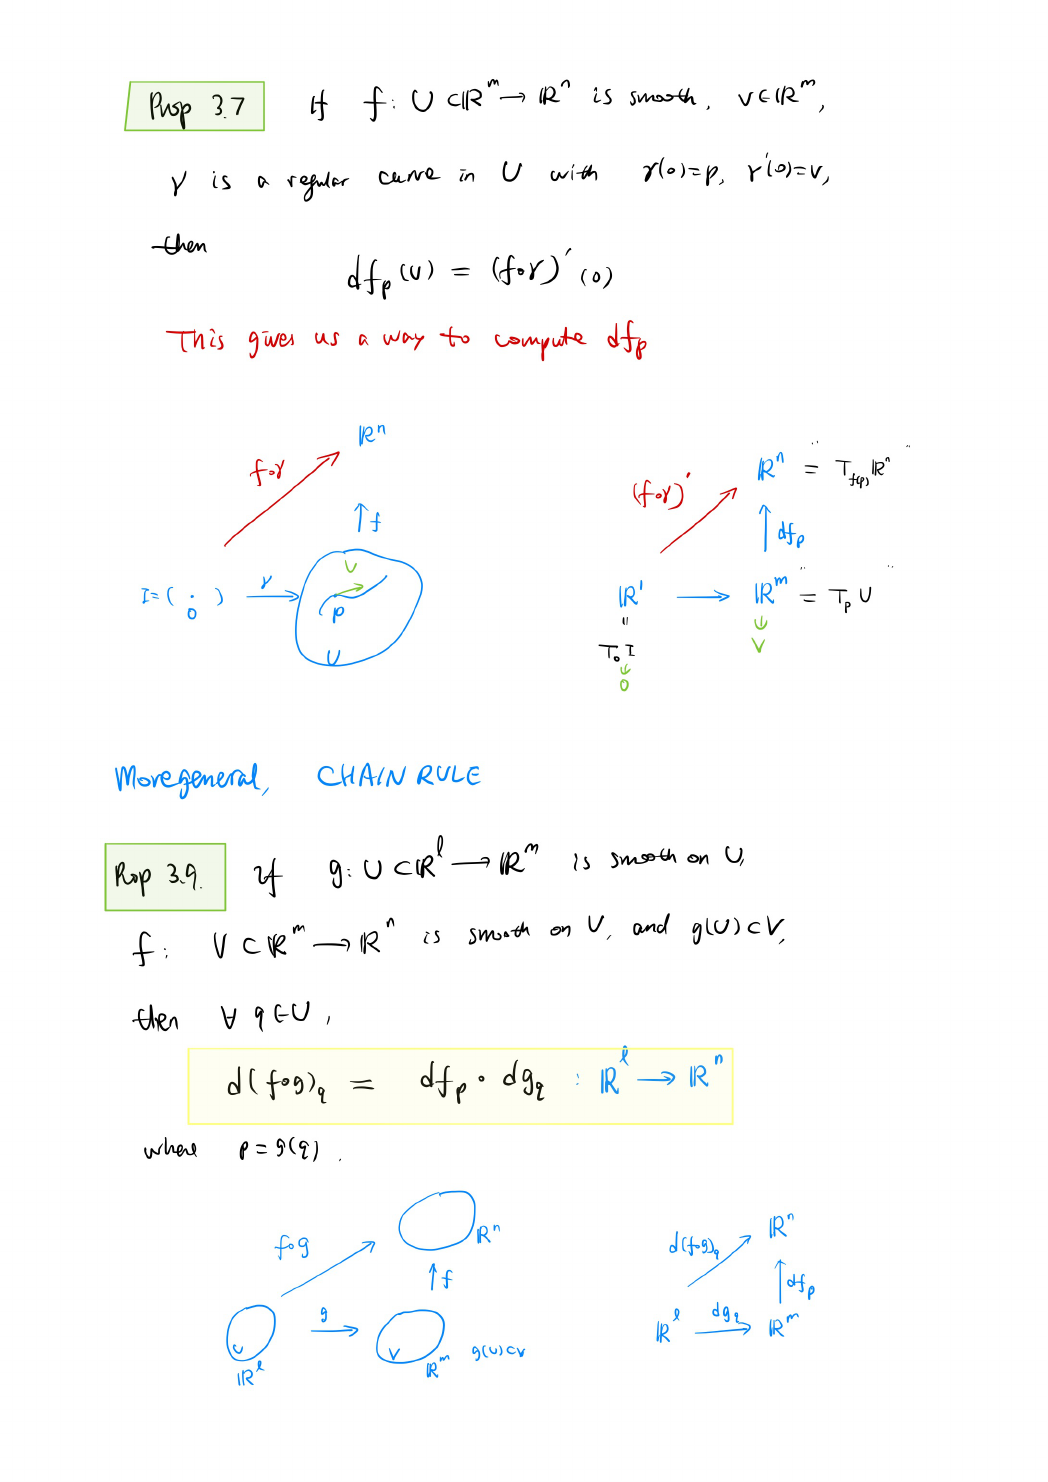 Prop 3.7 If f: U ⊂ ℝ^m → ℝ^n is smooth, v ∈ ℝ^m,
γ is a regular curve in U with γ(0)=p, γ'(0)=v,
then
df_p(v) = (f∘γ)'(0)
This gives us a way to compute df_p
ℝ^n
f∘γ
↑ f
I = ( 0 ) γ →
v
p
U
(f∘γ)'
ℝ^n = "T_{f(p)} ℝ^n"
↑ df_p
ℝ^1 → ℝ^m = "T_p U"
"
T_0 I
∈
0
∈
v
More general, CHAIN RULE
Prop 3.9. If g: U ⊂ ℝ^l → ℝ^m is smooth on U,
f: V ⊂ ℝ^m → ℝ^n is smooth on V, and g(U) ⊂ V,
then ∀ q ∈ U,
d(f∘g)_q = df_p ∘ dg_q : ℝ^l → ℝ^n
where p = g(q).
ℝ^n
f∘g
↑ f
g →
U
ℝ^l
V
ℝ^m g(U) ⊂ V
d(f∘g)_q
ℝ^n
↑ df_p
ℝ^l dg_q → ℝ^m